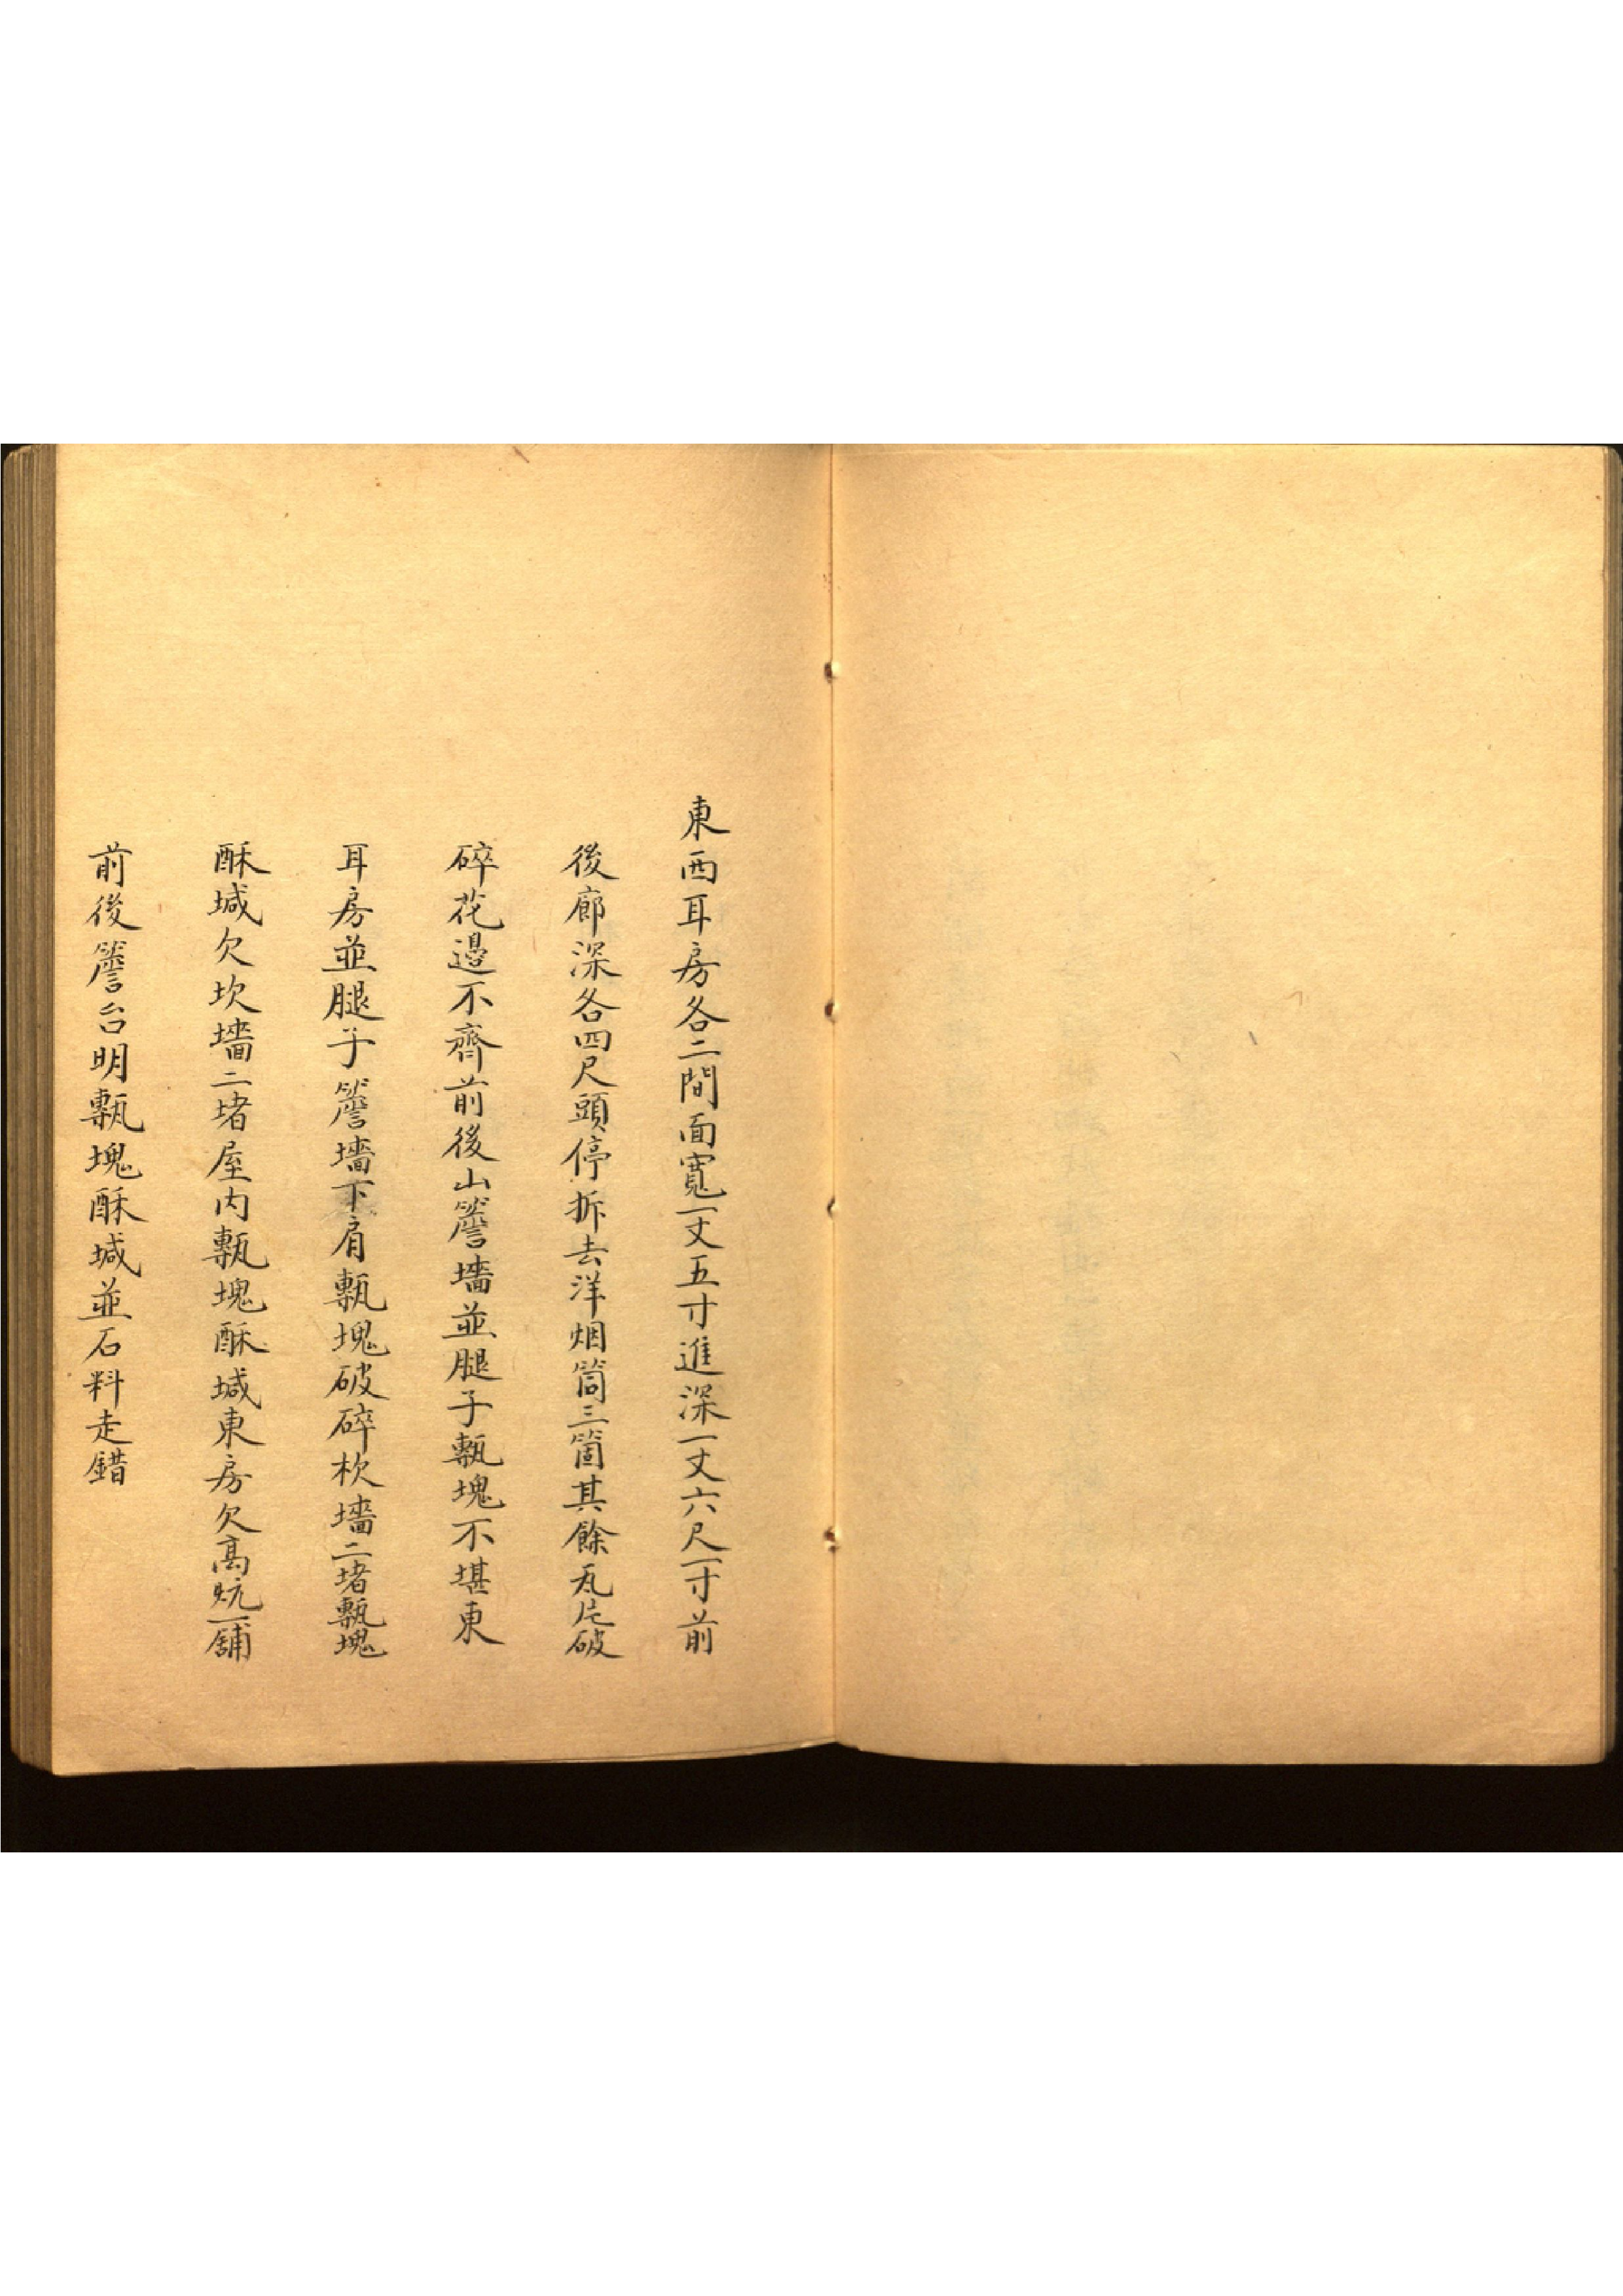 東西耳房各二間面寬一丈五寸進深一丈六尺一寸前
後廊深各四尺頭停拆去洋烟筒三箇其餘瓦片破
碎花邊不齊前後山簷墻並腿子甎塊不堪東
耳房並腿子簷墻下肩甎塊破碎坎墻二堵甎塊
酥堿欠坎墻二堵屋内甎塊酥堿東房欠高炕一舖
前後簷台明甎塊酥堿並石料走錯